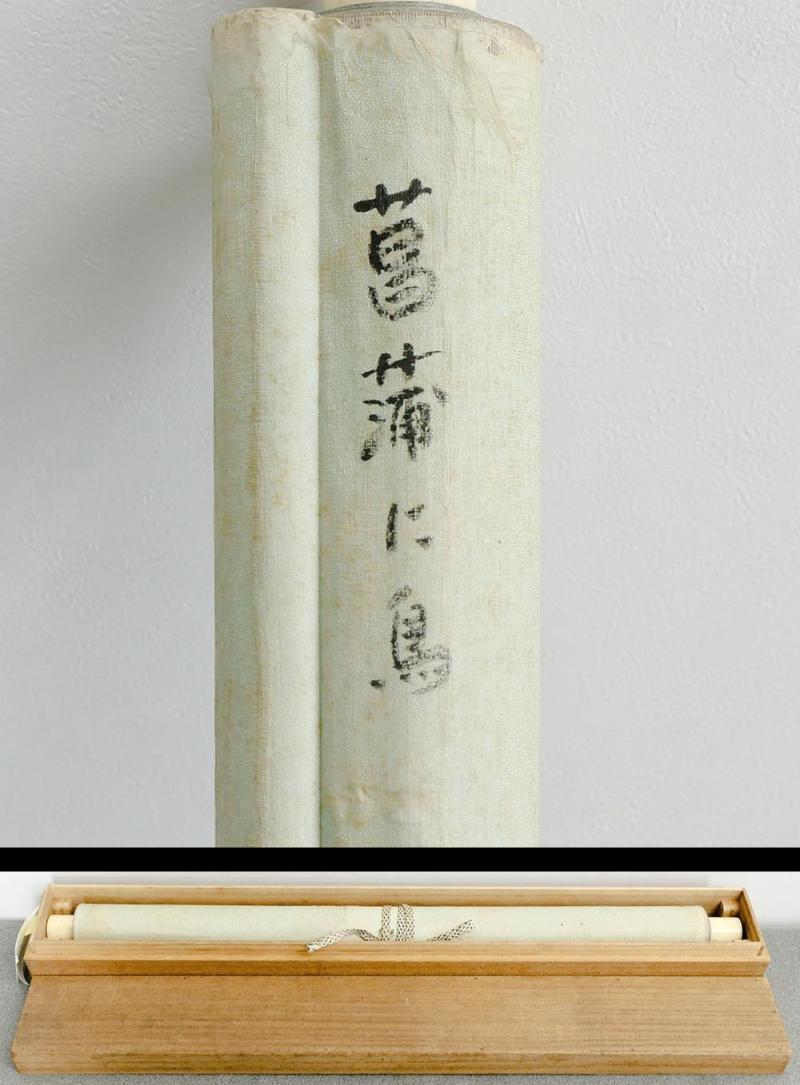 菖蒲に鳥